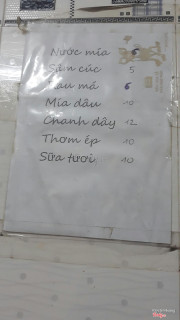 Nước mía 6
Sâm cúc 5
Rau má 6
Mía dâu 10
Chanh dây 12
Thơm ép 10
Sữa tươi 10